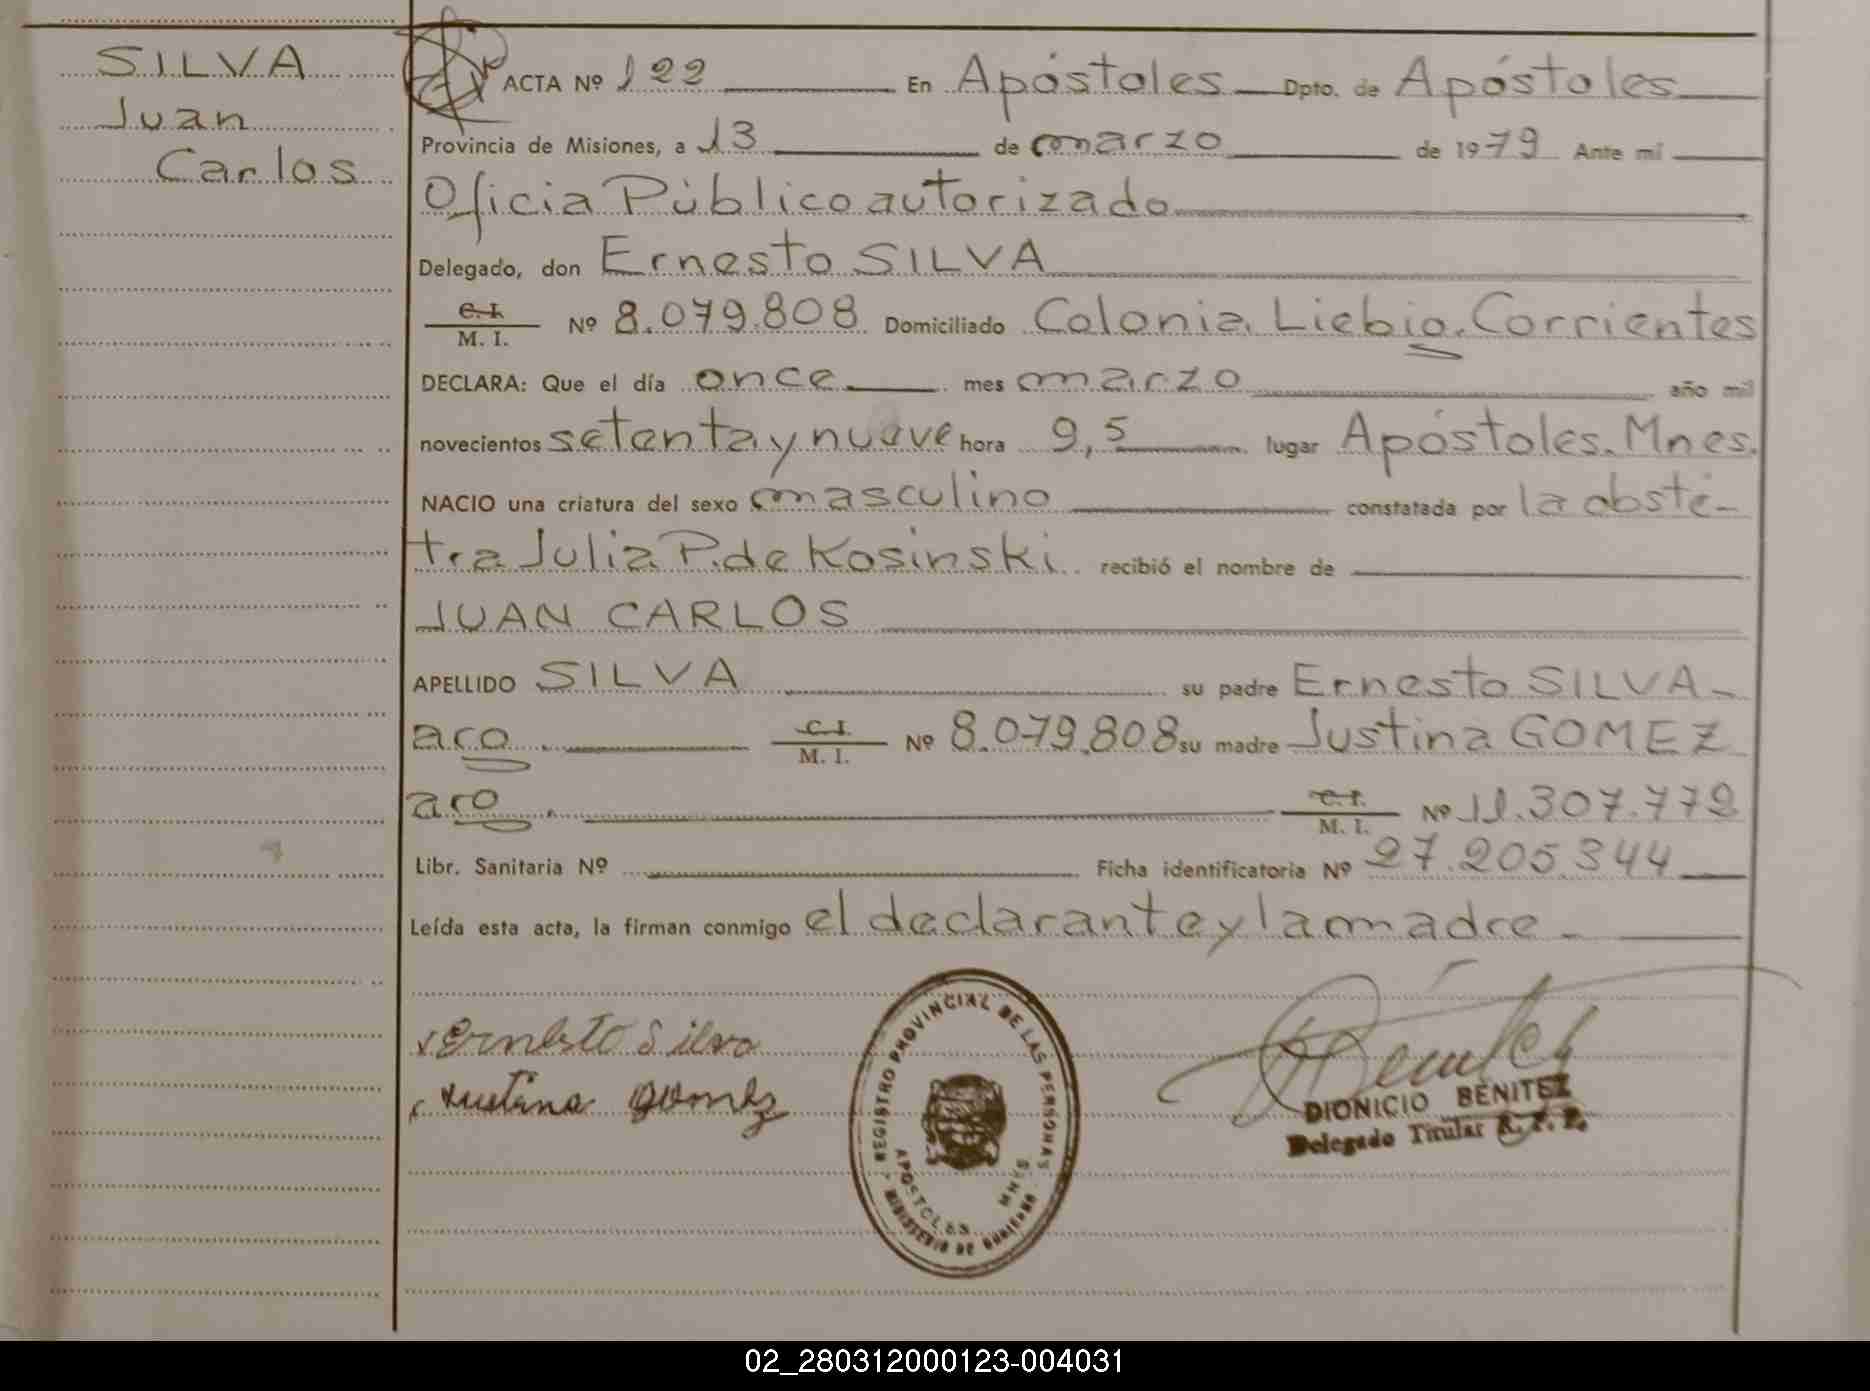 SILVA
Juan
Carlos
ACTA Nº 122 En Apóstoles Dpto. de Apóstoles
Provincia de Misiones, a 13 de marzo de 1979 Ante mí
Oficia Público autorizado
Delegado, don Ernesto SILVA
C. I.
M. I. Nº 8.079.808 Domiciliado Colonia Liebig. Corrientes
DECLARA: Que el día once mes marzo año mil
novecientos setenta y nueve hora 9,5 lugar Apóstoles. Mnes.
NACIO una criatura del sexo masculino constatada por la obsté-
tra Julia P. de Kosinski recibió el nombre de
JUAN CARLOS
APELLIDO SILVA su padre Ernesto SILVA-
arg. C. I.
M. I. Nº 8.079.808 su madre Justina GOMEZ
arg. C. I.
M. I. Nº 11.307.772
Libr. Sanitaria Nº Ficha identificatoria Nº 27.205.344
Leída esta acta, la firman conmigo el declarante y la madre-
Ernesto Silva
Justina Gomez
REGISTRO PROVINCIAL DE LAS PERSONAS
APOSTOLES MNES
MINISTERIO DE GOBIERNO
Benitez
DIONICIO BENITEZ
Delegado Titular R. P. P.
02_280312000123-004031